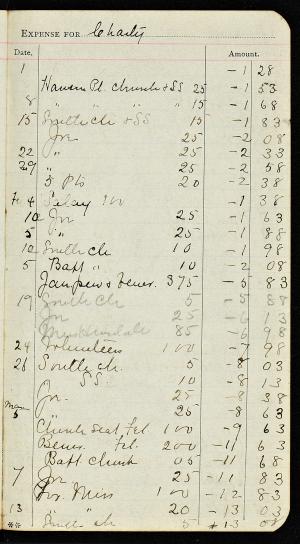 EXPENSE FOR Charity
Date. Amount.
1 -1 28
Hanson Pl. Church & SS 25 -1 53
8 " " " " 15 -1 68
15 South ch & SS 15 -1 83
Jre 25 -2 08
22 " 25 -2 33
29 " 25 -2 58
5 Pts 20 -2
Fe 4 100 -1 38
10 Jre 25 -1 63
5 " 25 -1 88
10 South Ch 10 -1 98
5 Bapt " 10 -2 08
Jan pew & benev. 375 -5 83
19 South Ch 5 -5 88
Jre 25 -6 13
85 -6 98
24 Volunteers 100 -7 98
26 South ch. 5 -8 03
SS. 10 -8 13
Jre. 25 -8 38
Mar 5 " 25 -8 63
Church seat Feb 100 -9 63
Benev. Feb. 200 -11 63
Bapt. Church 05 -11 68
7 Jre 25 -11 83
For. Miss 100 -12 83
13 " 20 -13 03
** South ch 5 -13 08